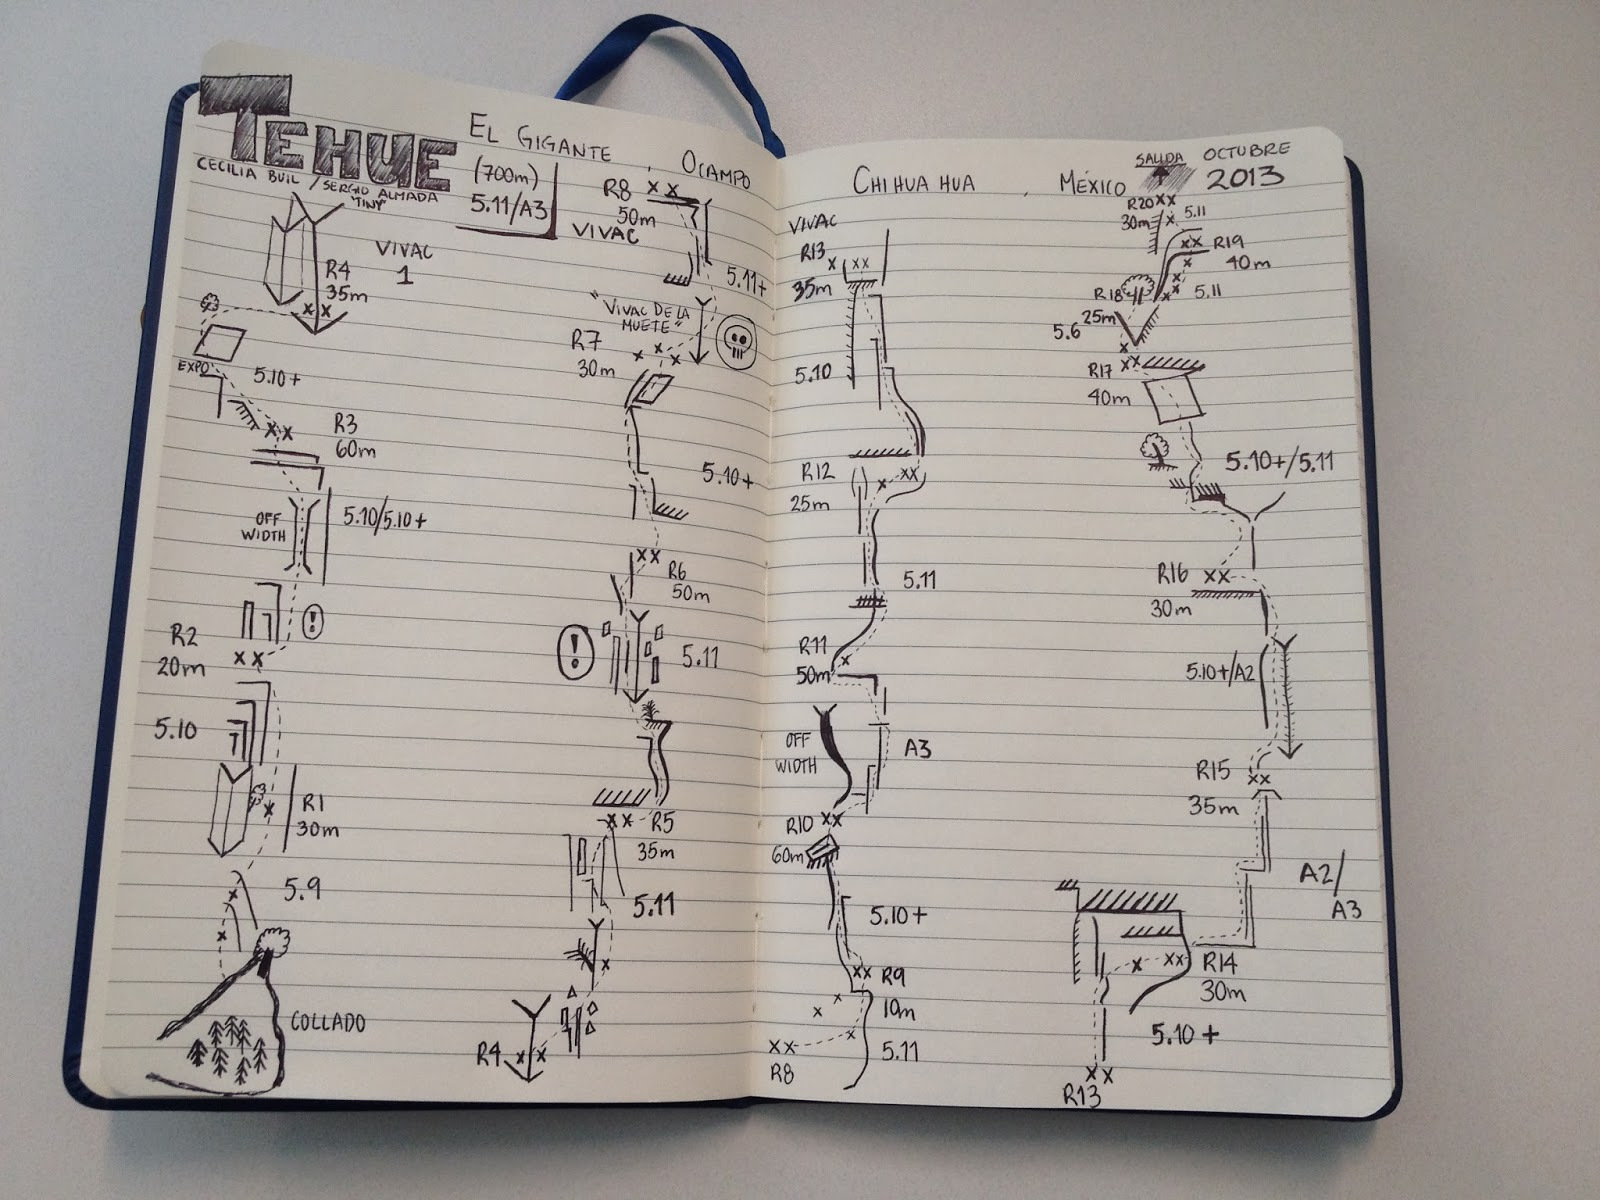 TEHUE
CECILIA BUIL / SERGIO ALMADA
"TINY"
EL GIGANTE, OCAMPO
(700m)
5.11/A3
VIVAC
1
R4
35m
EXPO
5.10+
R3
60m
OFF
WIDTH
5.10/5.10+
!
R2
20m
5.10
R1
30m
5.9
COLLADO
R8
50m
VIVAC
5.11+
"VIVAC DE LA
MUETE"
R7
30m
5.10+
R6
50m
!
5.11
R5
35m
5.11
R4
CHIHUAHUA, MÉXICO
SALIDA
OCTUBRE
2013
VIVAC
R13
35m
5.10
R12
25m
5.11
R11
50m
OFF
WIDTH
A3
R10
60m
5.10+
R9
10m
5.11
R8
R20
30m
5.11
R19
40m
5.11
R18
25m
5.6
R17
40m
5.10+/5.11
R16
30m
5.10+/A2
R15
35m
A2/
A3
R14
30m
5.10+
R13